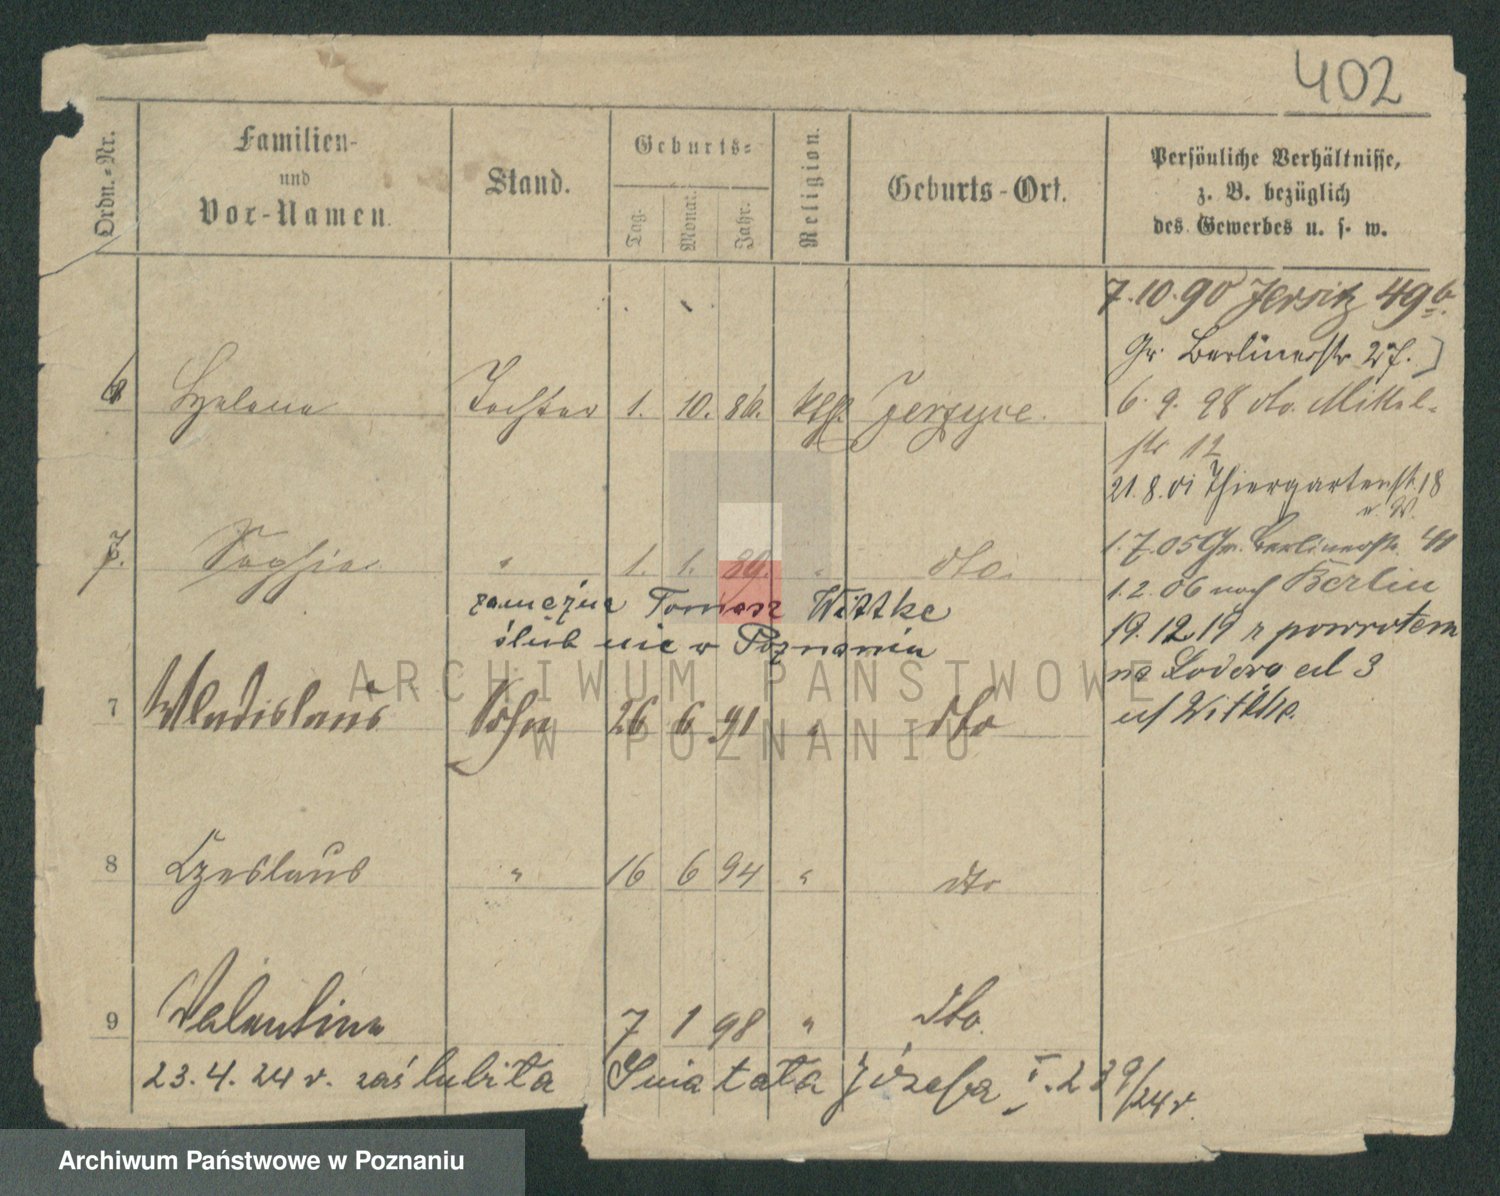 402
Ordn.-Nr.
Familien-
und
Vor-Namen.
Stand.
Geburts-
Tag.
Monat.
Jahr.
Religion.
Geburts-Ort.
Persönliche Verhältnisse,
z. B. bezüglich
des Gewerbes u. s. w.
7.10.90 Jersitz 49b.
Gr. Berlinerstr 27.
6 Helena Tochter 1. 10. 86. kth. Jerzyce.
6. 9. 98 dto. Mittel-
str 12
21.8.01 Thiergartenstr 18
Sophie " 1. 1. 89. " dto.
1.7.05 Gr. Berlinerstr.
1.2.06 nach Berlin
zamężna Tomasz Wittke
ślub nie w Poznaniu
19.12.19 z powrotem
7 Wladislaus Sohn 26 6 91 " dto
3
uf Wittke.
8 Czeslaus " 16 6 94 " dto
9 Valentine 7 1 98 " dto.
23.4.24 r. zaślubiła Światała Józefa I. 239/24 r.
ARCHIWUM PAŃSTWOWE
W POZNANIU
Archiwum Państwowe w Poznaniu